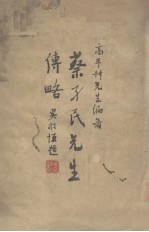 高平叔先生編著
蔡孑民先生
傳略
吳敬恆題